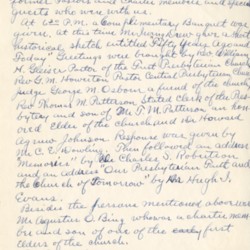 former pastors and charter members and special
guests who were with us.
At 6:30 P.M. a Complimentary Banquet was
given, at this time Mr. Jay Drew gave a short
historical sketch entitled "Fifty Years Ago and
Today" Greetings were brought by Rev. William
H. Geisler Pastor of the First Presbyterian Church,
Rev. G. H. Howerton, Pastor Central Presbyterian Church
Judge George M. Osbour a friend of the church
Rev Thomas M. Patterson Stated Clerk of the Pres-
bytery and son of Mr. P. W. Patterson an hon-
ored elder of the church and Ira Howard
Agnew Johnson. Response was given by
Mr. C. E. Rowling. Then followed an address
Memories" by Dr. Charles S. Robertson
and an address "Our Presbyterian Past and
the Church of Tomorrow" by Dr. Hugh I.
Evans.
Besides the persons mentioned above was
Mr. Augustine O. Bing who was a charter mem-
ber and son of one of the early first
elders of the church.